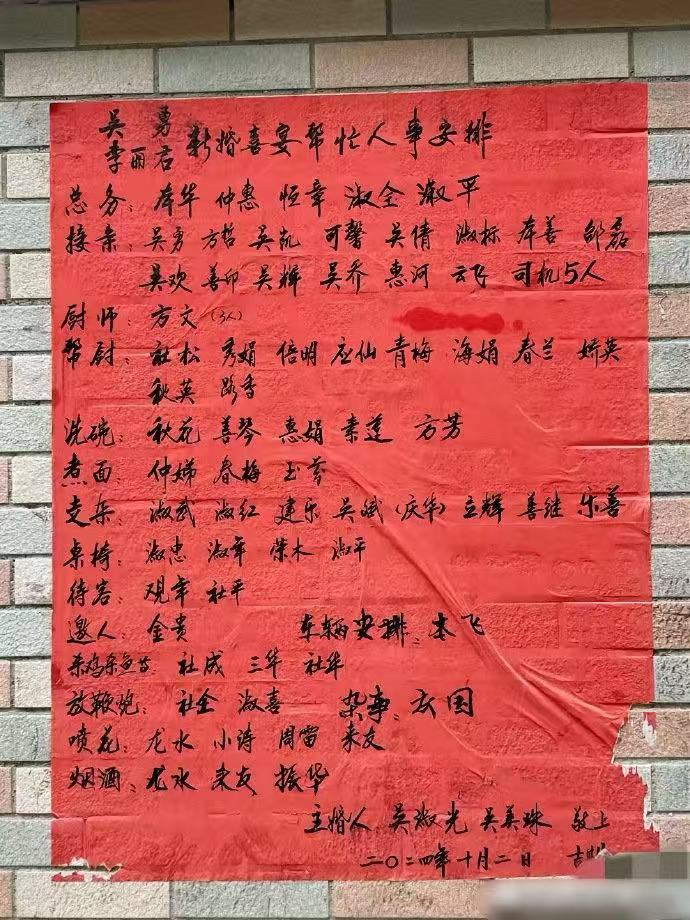 吴勇
李丽君 新婚喜宴帮忙人事安排
总务： 孝华 仲惠 恒章 淑全 淑平
接亲：吴勇 方哲 吴凯 可馨 吴倩 淑标 孝善 邹磊
吴欢 善印 吴辉 吴乔 惠河 云飞 司机5人
厨师：方文(3人)
帮厨：社松 秀娟 倍明 应仙 青梅 海娟 春兰 娇英
秋英 路香
洗碗：秋花 善琴 惠娟 素莲 方芳
煮面：仲娣 春梅 玉芬
支朵：淑武 淑红 建乐 吴斌(庆华) 立辉 善继 乐善
桌椅：淑忠 淑年 荣木 淑平
待客：观年 社平
邀人：金贵 车辆安排：本飞
杀鸡杀鱼等：社成 三华 社华
放鞭炮：社全 淑喜 杂事：云国
喷花：龙水 小诗 周雷 来友
烟酒：龙水 来友 振华
主婚人 吴淑光 吴美珠 敬上
二〇二四年十月二日 吉